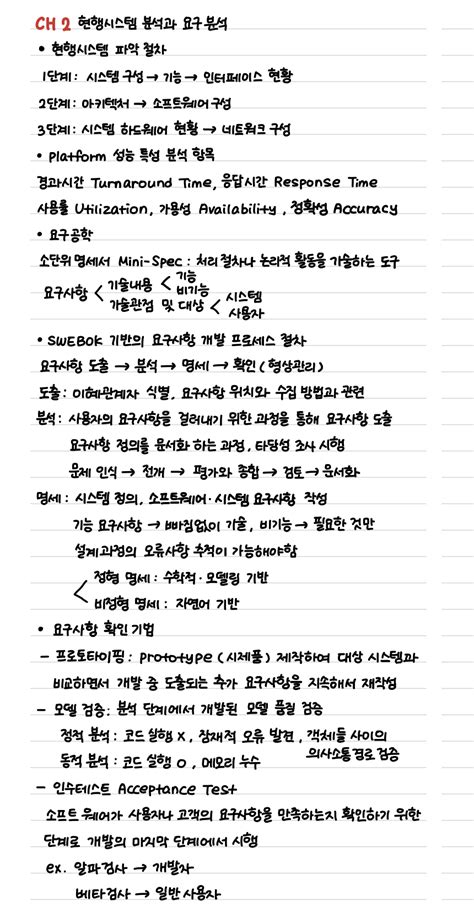 CH 2 현행시스템 분석과 요구 분석
• 현행시스템 파악 절차
1단계: 시스템 구성 → 기능 → 인터페이스 현황
2단계: 아키텍처 → 소프트웨어 구성
3단계: 시스템 하드웨어 현황 → 네트워크 구성
• Platform 성능 특성 분석 항목
경과시간 Turnaround Time, 응답시간 Response Time
사용률 Utilization, 가용성 Availability, 정확성 Accuracy
• 요구공학
소단위 명세서 Mini-Spec : 처리 절차나 논리적 활동을 기술하는 도구
요구사항 < 기술내용 < 기능
비기능
기술관점 및 대상 < 시스템
사용자
• SWEBOK 기반의 요구사항 개발 프로세스 절차
요구사항 도출 → 분석 → 명세 → 확인 (형상관리)
도출: 이해관계자 식별, 요구사항 위치와 수집 방법과 관련
분석: 사용자의 요구사항을 걸러내기 위한 과정을 통해 요구사항 도출
요구사항 정의를 문서화 하는 과정, 타당성 조사 시행
문제 인식 → 전개 → 평가와 종합 → 검토 → 문서화
명세: 시스템 정의, 소프트웨어·시스템 요구사항 작성
기능 요구사항 → 빠짐없이 기술, 비기능 → 필요한 것만
설계 과정의 오류사항 추적이 가능해야함
< 정형 명세: 수학적·모델링 기반
비정형 명세: 자연어 기반
• 요구사항 확인 기법
- 프로토타이핑: Prototype (시제품) 제작하여 대상 시스템과
비교하면서 개발 중 도출되는 추가 요구사항을 지속해서 재작성
- 모델 검증: 분석 단계에서 개발된 모델 품질 검증
정적 분석: 코드 실행 X, 잠재적 오류 발견, 객체들 사이의
의사소통 경로 검증
동적 분석: 코드 실행 O, 메모리 누수
- 인수테스트 Acceptance Test
소프트웨어가 사용자나 고객의 요구사항을 만족하는지 확인하기 위한
단계로 개발의 마지막 단계에서 시행
ex. 알파검사 → 개발자
베타검사 → 일반 사용자